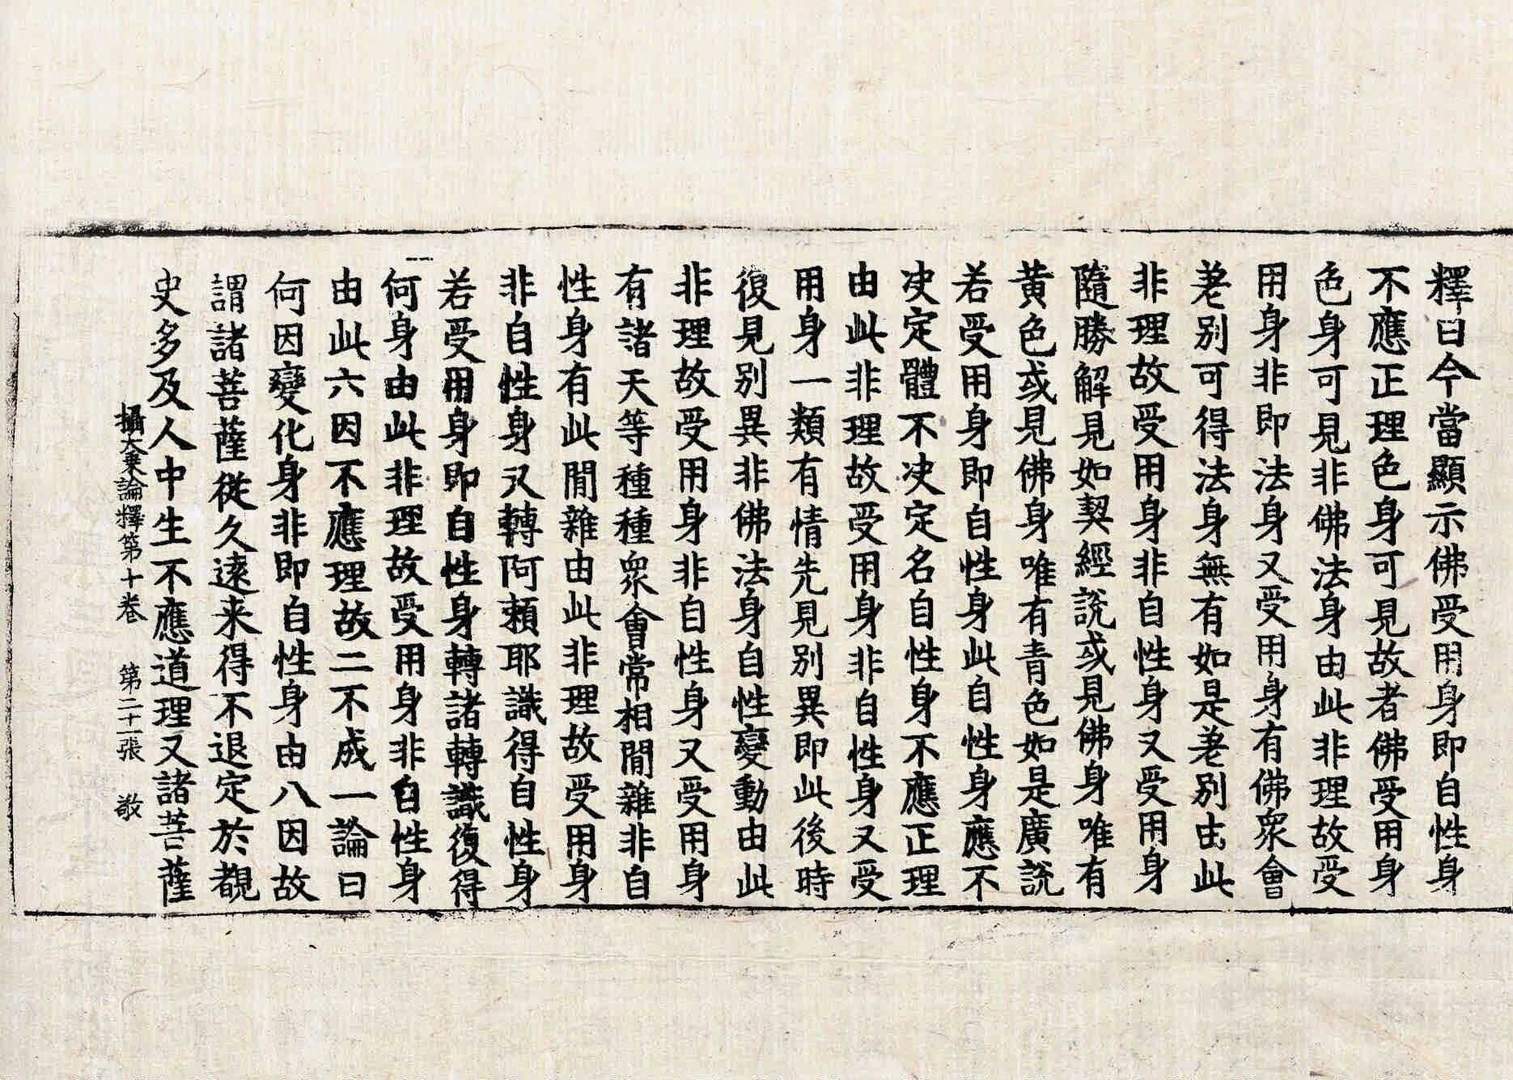 釋曰今當顯示佛受用身即自性身
不應正理色身可見故者佛受用身
色身可見非佛法身由此非理故受
用身非即法身又受用身有佛眾會
差别可得法身無有如是差别由此
非理故受用身非自性身又受用身
隨勝解見如契經說或見佛身唯有
黃色或見佛身唯有青色如是廣說
若受用身即自性身此自性身應不
决定體不决定名自性身不應正理
由此非理故受用身非自性身又受
用身一類有情先見別異即此後時
復見别異非佛法身自性變動由此
非理故受用身非自性身又受用身
有諸天等種種眾會常相間雜非自
性身有此間雜由此非理故受用身
非自性身又轉阿賴耶識得自性身
若受用身即自性身轉諸轉識復得
何身由此非理故受用身非自性身
由此六因不應理故二不成一論曰
何因變化身非即自性身由八因故
謂諸菩薩從久遠来得不退定於覩
史多及人中生不應道理又諸菩薩
攝大乗論釋第十卷 第二十一張 敬